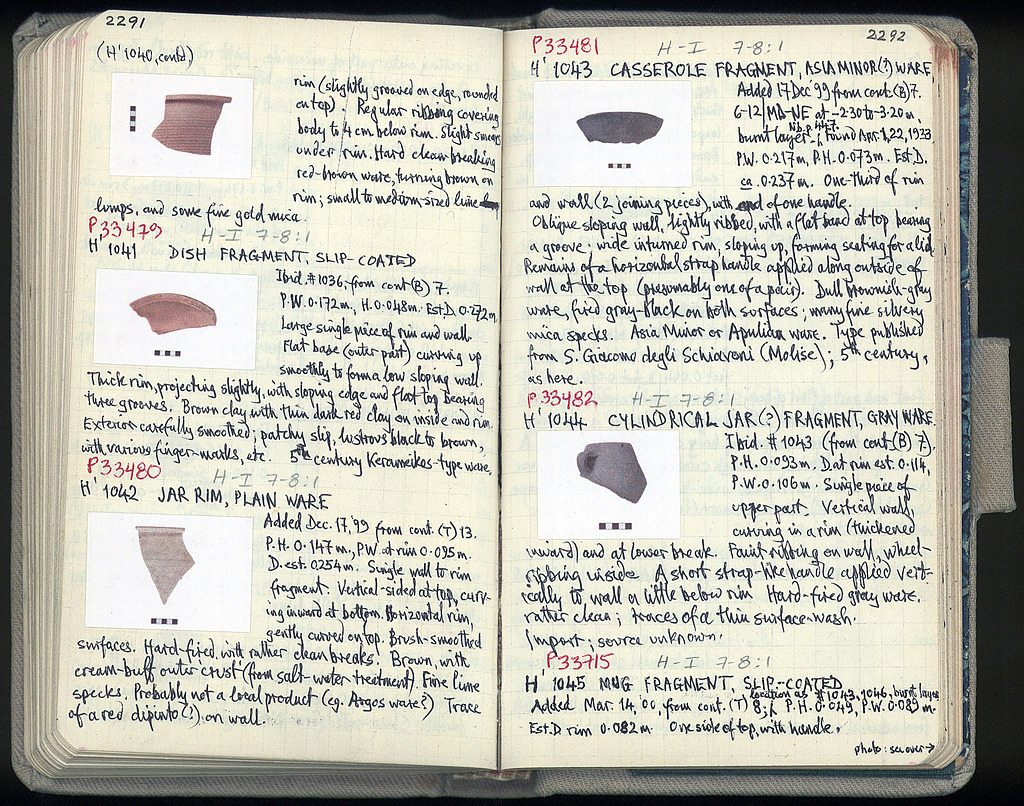 2291
(H' 1040, contd.)
rim (slightly grooved on edge, rounded
on top). Regular ribbing covering
body to 4 cm. below rim. Slight smears
under rim. Hard clean-breaking
red-brown ware, turning brown on
rim; small to medium-sized lime
lumps, and some fine gold mica.
P33479
H-I 7-8:1
H' 1041 DISH FRAGMENT, SLIP-COATED
Ibid. #1036; from cont (B) 7.
P.W. 0.172m, H. 0.048m. Est. D. 0.272m,
Large single piece of rim and wall.
Flat base (outer part) curving up
smoothly to form a low sloping wall.
Thick rim, projecting slightly, with sloping edge and flat top bearing
three grooves. Brown clay with thin dark red clay on inside and rim.
Exterior carefully smoothed; patchy slip, lustrous black to brown,
with various finger-marks, etc. 5th century Kerameikos-type ware,
P33480
H-I 7-8:1
H' 1042 JAR RIM, PLAIN WARE
Added Dec. 17, '99 from cont. (T) 13.
P.H. 0.147m, P.W. at rim 0.095m.
D. est. 0.254m. Single wall to rim
fragment. Vertical-sided at top, curv-
ing inward at bottom. Horizontal rim,
gently curved on top. Brush-smoothed
surfaces. Hard-fired, with rather clean breaks. Brown, with
cream-buff outer crust (from salt-water treatment). Fine lime
specks. Probably not a local product (eg. Argos ware?) Trace
of a red dipinto(?) on wall.
2292
P33481
H-I 7-8:1
H' 1043 CASSEROLE FRAGMENT, ASIA MINOR(?) WARE,
Added 17 Dec 99 from cont. (B) 7.
6-12/MB-NE at -2.30 to -3.20 m,
burnt layer; found Apr. 1, 22, 1923
P.W. 0.217m, P.H. 0.073m. Est. D.
ca 0.237m. One-third of rim
and wall (2 joining pieces), with end of one handle.
Oblique sloping wall, lightly ribbed, with a flat band at top bearing
a groove; wide inturned rim, sloping up, forming seating for a lid.
Remains of a horizontal strap handle applied along outside of
wall at the top (presumably one of a pair). Dull brownish-gray
ware, fired gray-black on both surfaces; many fine silvery
mica specks. Asia Minor or Apulian ware. Type published
from S. Giacomo degli Schiavoni (Molise); 5th century,
as here.
P33482
H-I 7-8:1
H' 1044 CYLINDRICAL JAR(?) FRAGMENT, GRAY WARE.
Ibid. #1043 (from cont. (B) 7).
P.H. 0.093m. D at rim est. 0.114,
P.W. 0.106m. Single piece of
upper part. Vertical wall,
curving in a rim (thickened
inward) and at lower break. Faint ribbing on wall, wheel-
ribbing inside. A short strap-like handle applied vert-
ically to wall a little below rim. Hard-fired gray ware.
rather clean; traces of a thin surface-wash.
Import; source unknown.
P33715
H-I 7-8:1
H' 1045 MUG FRAGMENT, SLIP-COATED
location as #1043, 1046, burnt layer
Added Mar. 14, 00, from cont. (T) 8; P.H. 0.049, P.W. 0.089m.
Est. D rim 0.082m. One side of top, with handle.
photo: see over →